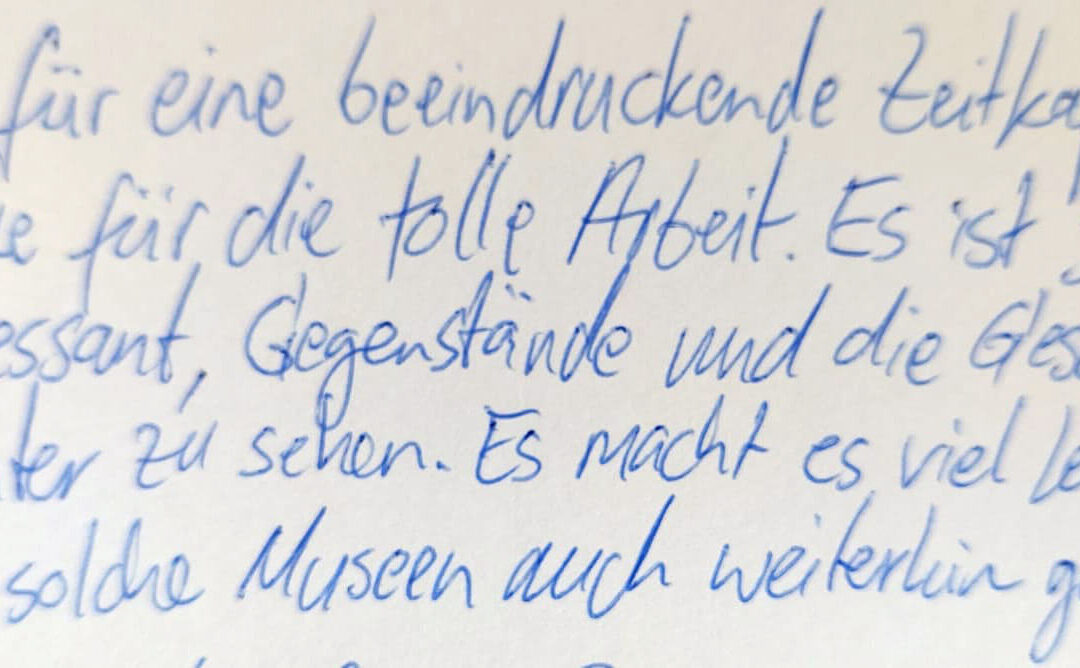 für eine beeindruckende Zeitka
e für die tolle Arbeit. Es ist
essant, Gegenstände und die Ges
ter zu sehen. Es macht es viel le
solche Museen auch weiterhin g